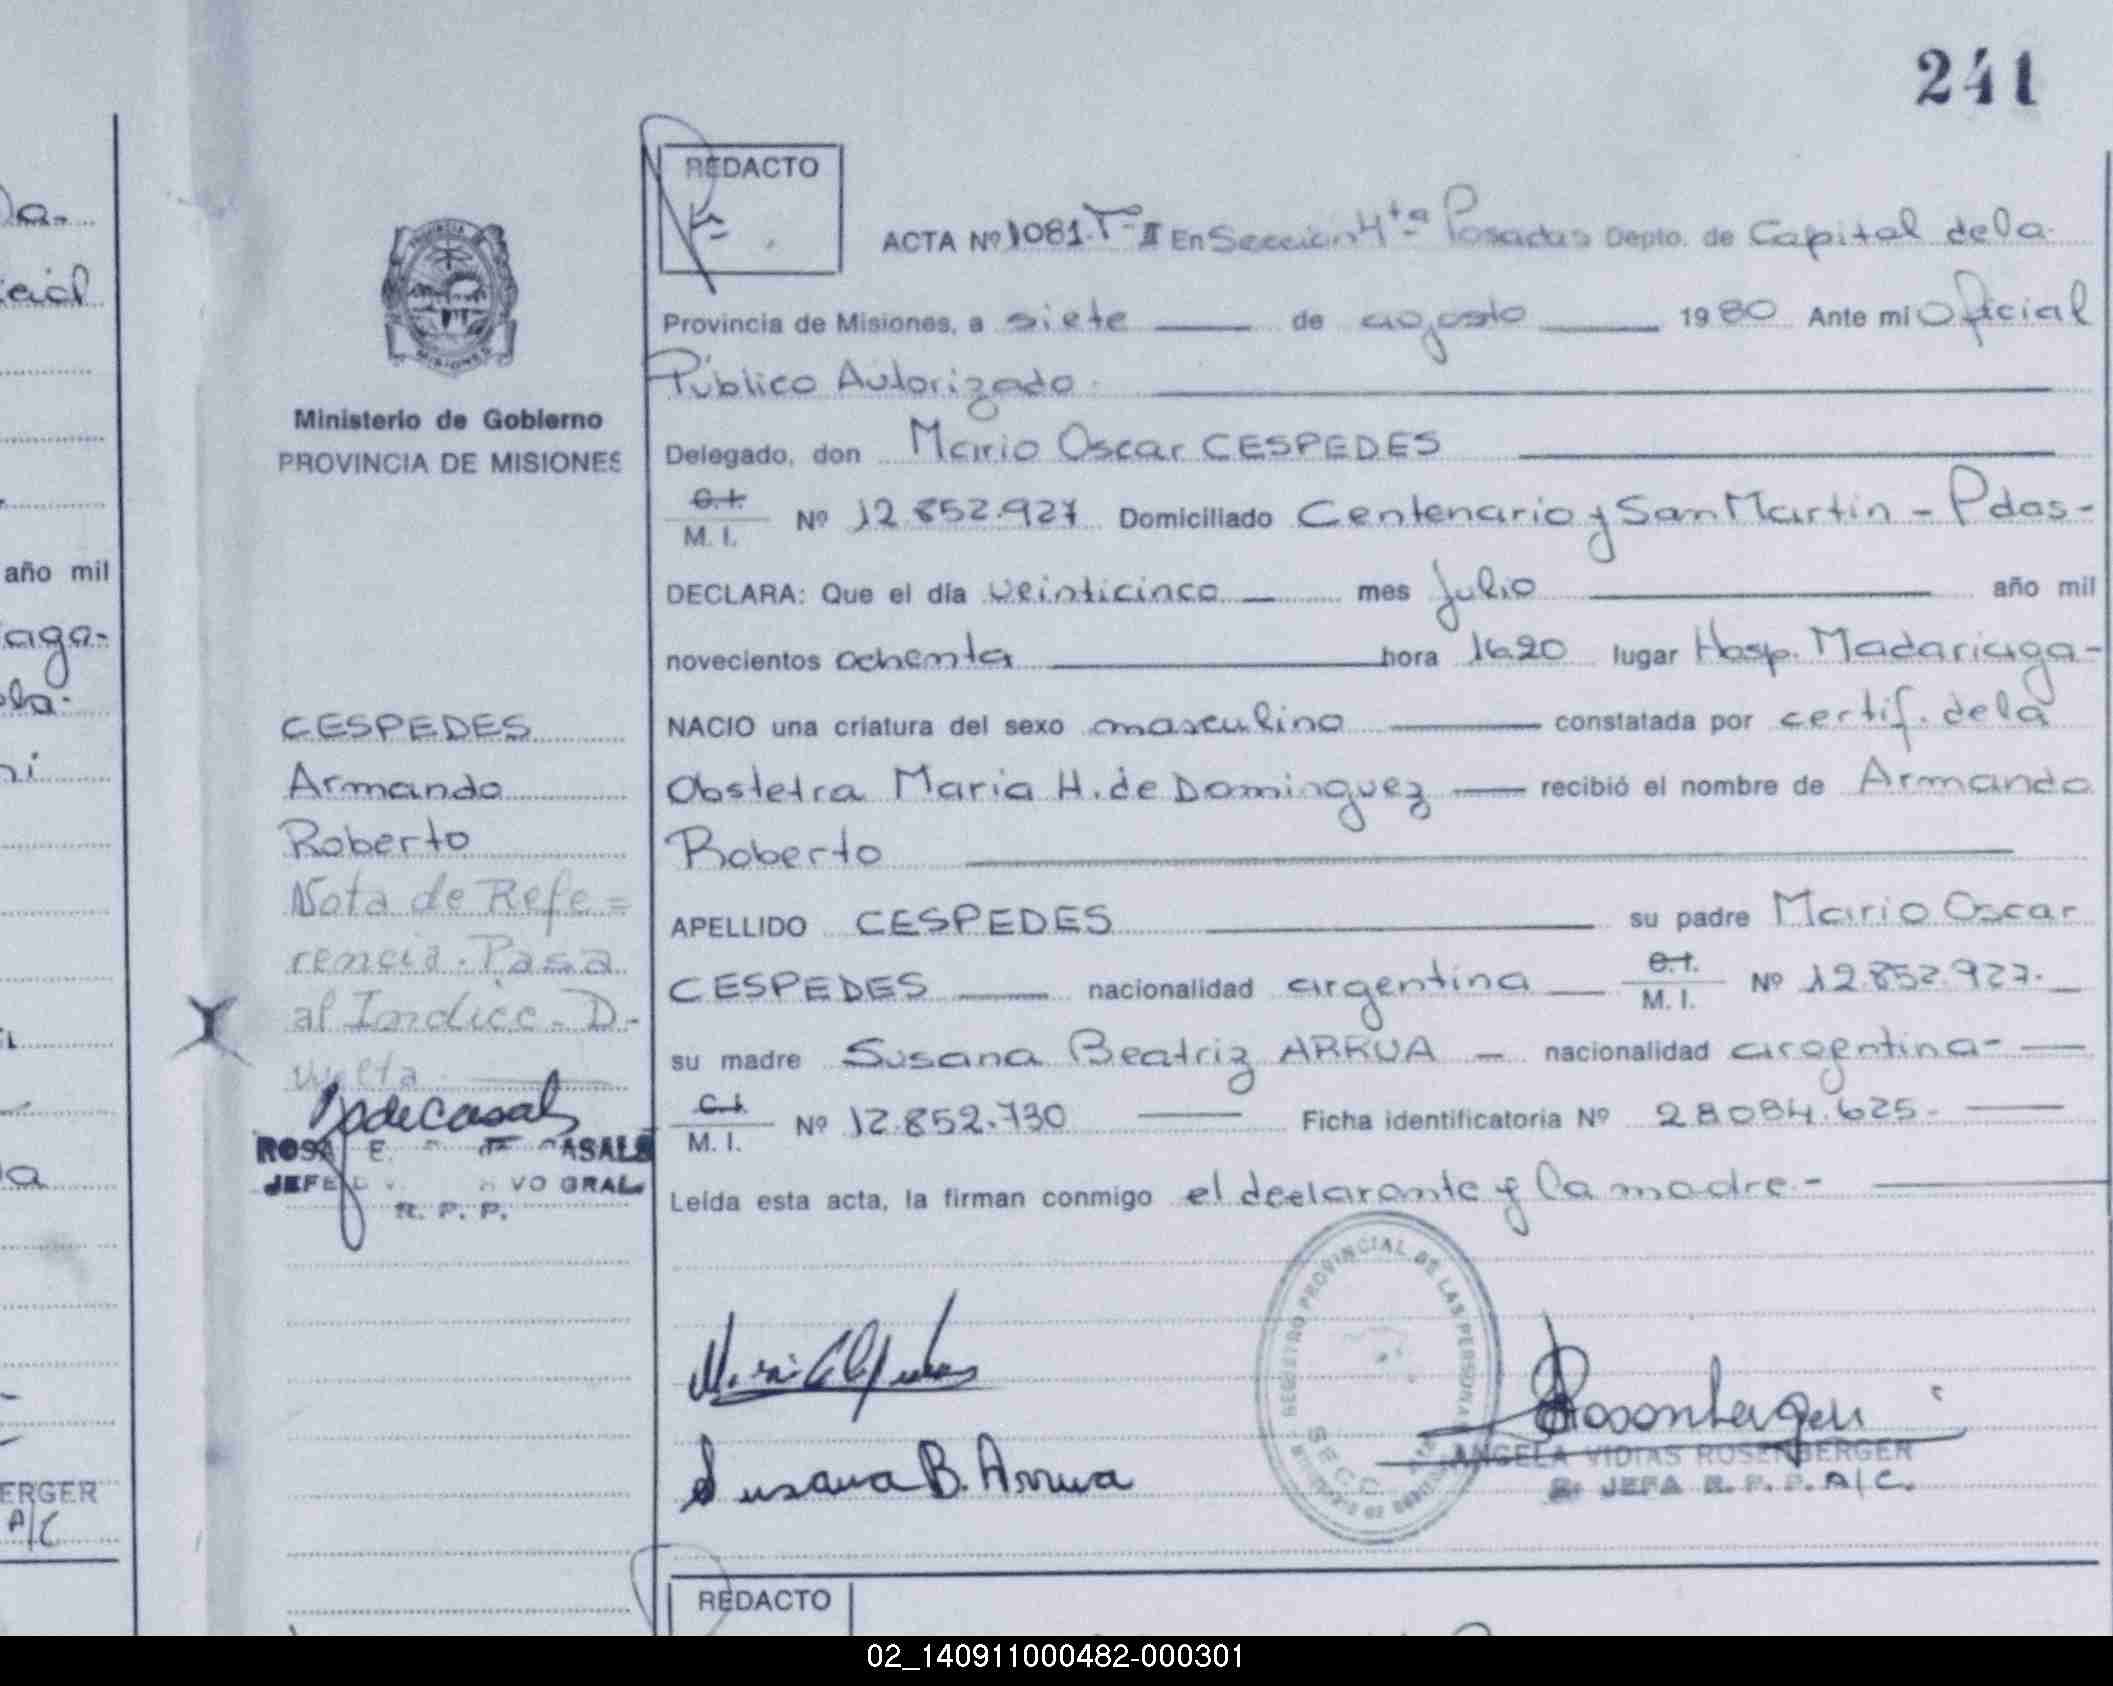 241
REDACTO
ACTA Nº 1081 Tº II En Sección 4ta Posadas Depto. de Capital de la
Provincia de Misiones, a siete de agosto 1980 Ante mi Oficial
Público Autorizado.
Delegado, don Mario Oscar CESPEDES
C.I. M. I. Nº 12.852.927 Domiciliado Centenario y San Martin - Pdas-
DECLARA: Que el día veinticinco mes Julio año mil
novecientos ochenta hora 16.20 lugar Hosp. Madariaga-
NACIO una criatura del sexo masculino constatada por certif. de la
Obstetra Maria H. de Dominguez recibió el nombre de Armando
Roberto
APELLIDO CESPEDES su padre Mario Oscar
CESPEDES nacionalidad argentina C.I. M. I. Nº 12.852.927.
su madre Susana Beatriz ARRUA - nacionalidad argentina-
C.I. M. I. Nº 12.852.730 Ficha identificatoria Nº 28084.625-
Leída esta acta, la firman conmigo el declarante y la madre.-
Susana B. Arrua
REGISTRO PROVINCIAL DE LAS PERSONAS
SECC.
ANGELA VIDIAS ROSENBERGER
JEFA R. P. P. A/C.
Ministerio de Gobierno
PROVINCIA DE MISIONES
CESPEDES
Armando
Roberto
Nota de Refe=
rencia. Pasa
al Indice - D-
vuelta
ROSA E. CASALS
JEFE VO GRAL.
R. P. P.
año mil
ERGER
A/C
REDACTO
02_140911000482-000301